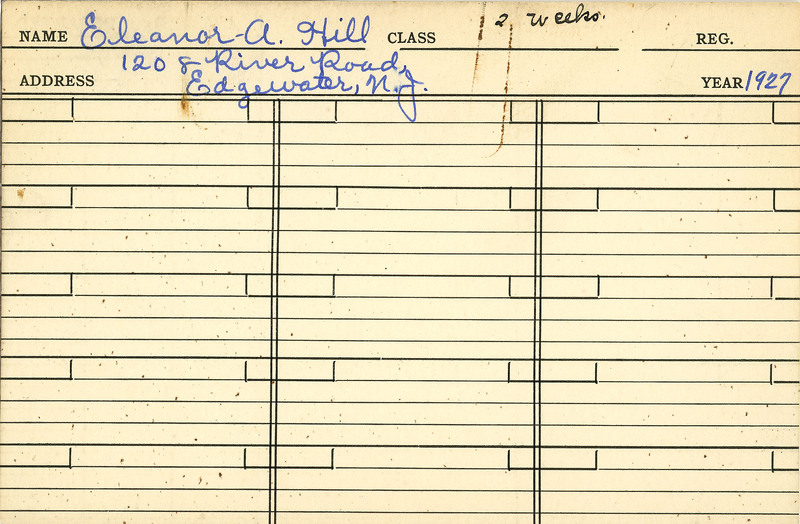 NAME Eleanor A. Hill CLASS 2 weeks. REG.
ADDRESS 1208 River Road,
Edgewater, N.J. YEAR 1927